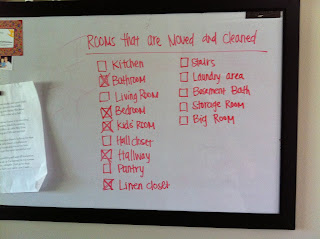 Rooms that are Moved and Cleaned
Kitchen
Bathroom
Living Room
Bedroom
Kids' Room
Hall closet
Hallway
Pantry
Linen closet
Stairs
Laundry area
Basement Bath
Storage Room
Big Room